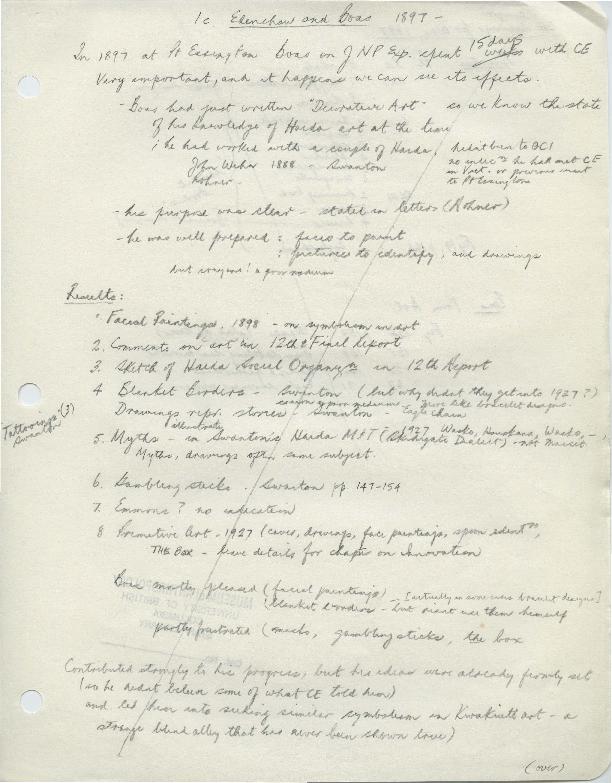 1c Edenshaw and Boas 1897 -
In 1897 at Pt Essington Boas on J NP Exp. spent 15 days with CE
Very important, and it happens we can see its effects.
- Boas had just written "Decorative Art" so we know the state
of his knowledge of Haida art at the time
; he had worked with a couple of Haida,
John Wesha 1888 - Swanton
Rohner.
hadn't been to QCI
no indic^n he had met CE
in Vict. or previous visit
to Pt Essington
- his purpose was clear - stated in letters (Rohner)
- he was well prepared : faces to paint
: pictures to identify, and drawings
but crayons! a poor medium
Results:
1. Facial Paintings, 1898 - on symbolism in art
2. Comments on art in 12th & Final Report
3. Sketch of Haida Social Organiz^n in 12th Report
4 Blanket Borders - Swanton (but why didn't they get into 1927?)
crayon a poor medium
Drawings repr. stories - Swanton
Tattooings (3)
Swanton
illustrate
5. Myths - in Swanton's Haida M+T (Skidegate Dialect) - not Masset
Myths, drawings often same subject.
6. Gambling sticks. Swanton pp. 147-154
7. Emmons? no indication
8 Primitive Art - 1927 (canoe, drawings, face paintings, spoon ident^ns,
THE BOX - leave details for chapter on Innovation
Boas mostly pleased (facial paintings)
blanket borders - but didn't use them himself
[actually in some ways bracelet designs]
partly frustrated (masks, gambling sticks, the box
Contributed strongly to his progress, but his ideas were already firmly set
(so he didn't believe some of what CE told him)
and led him into seeking similar symbolism in Kwakiutl art - a
strange blind alley that has never been shown true)
(over)